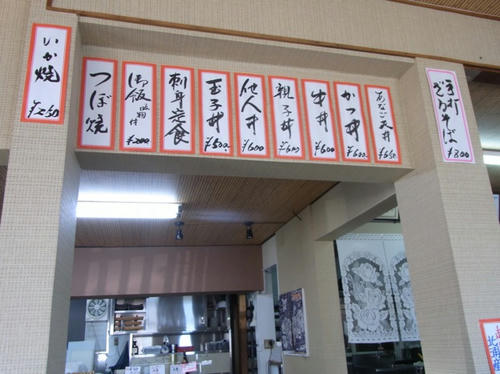 いか焼
¥250
つぼ焼
御飯
吸物付
¥200
刺身定食
玉子丼
¥500
他人丼
¥600
親子丼
¥600
牛丼
¥600
かつ丼
¥600
あなご天丼
¥650
手打
ざるそば
¥300